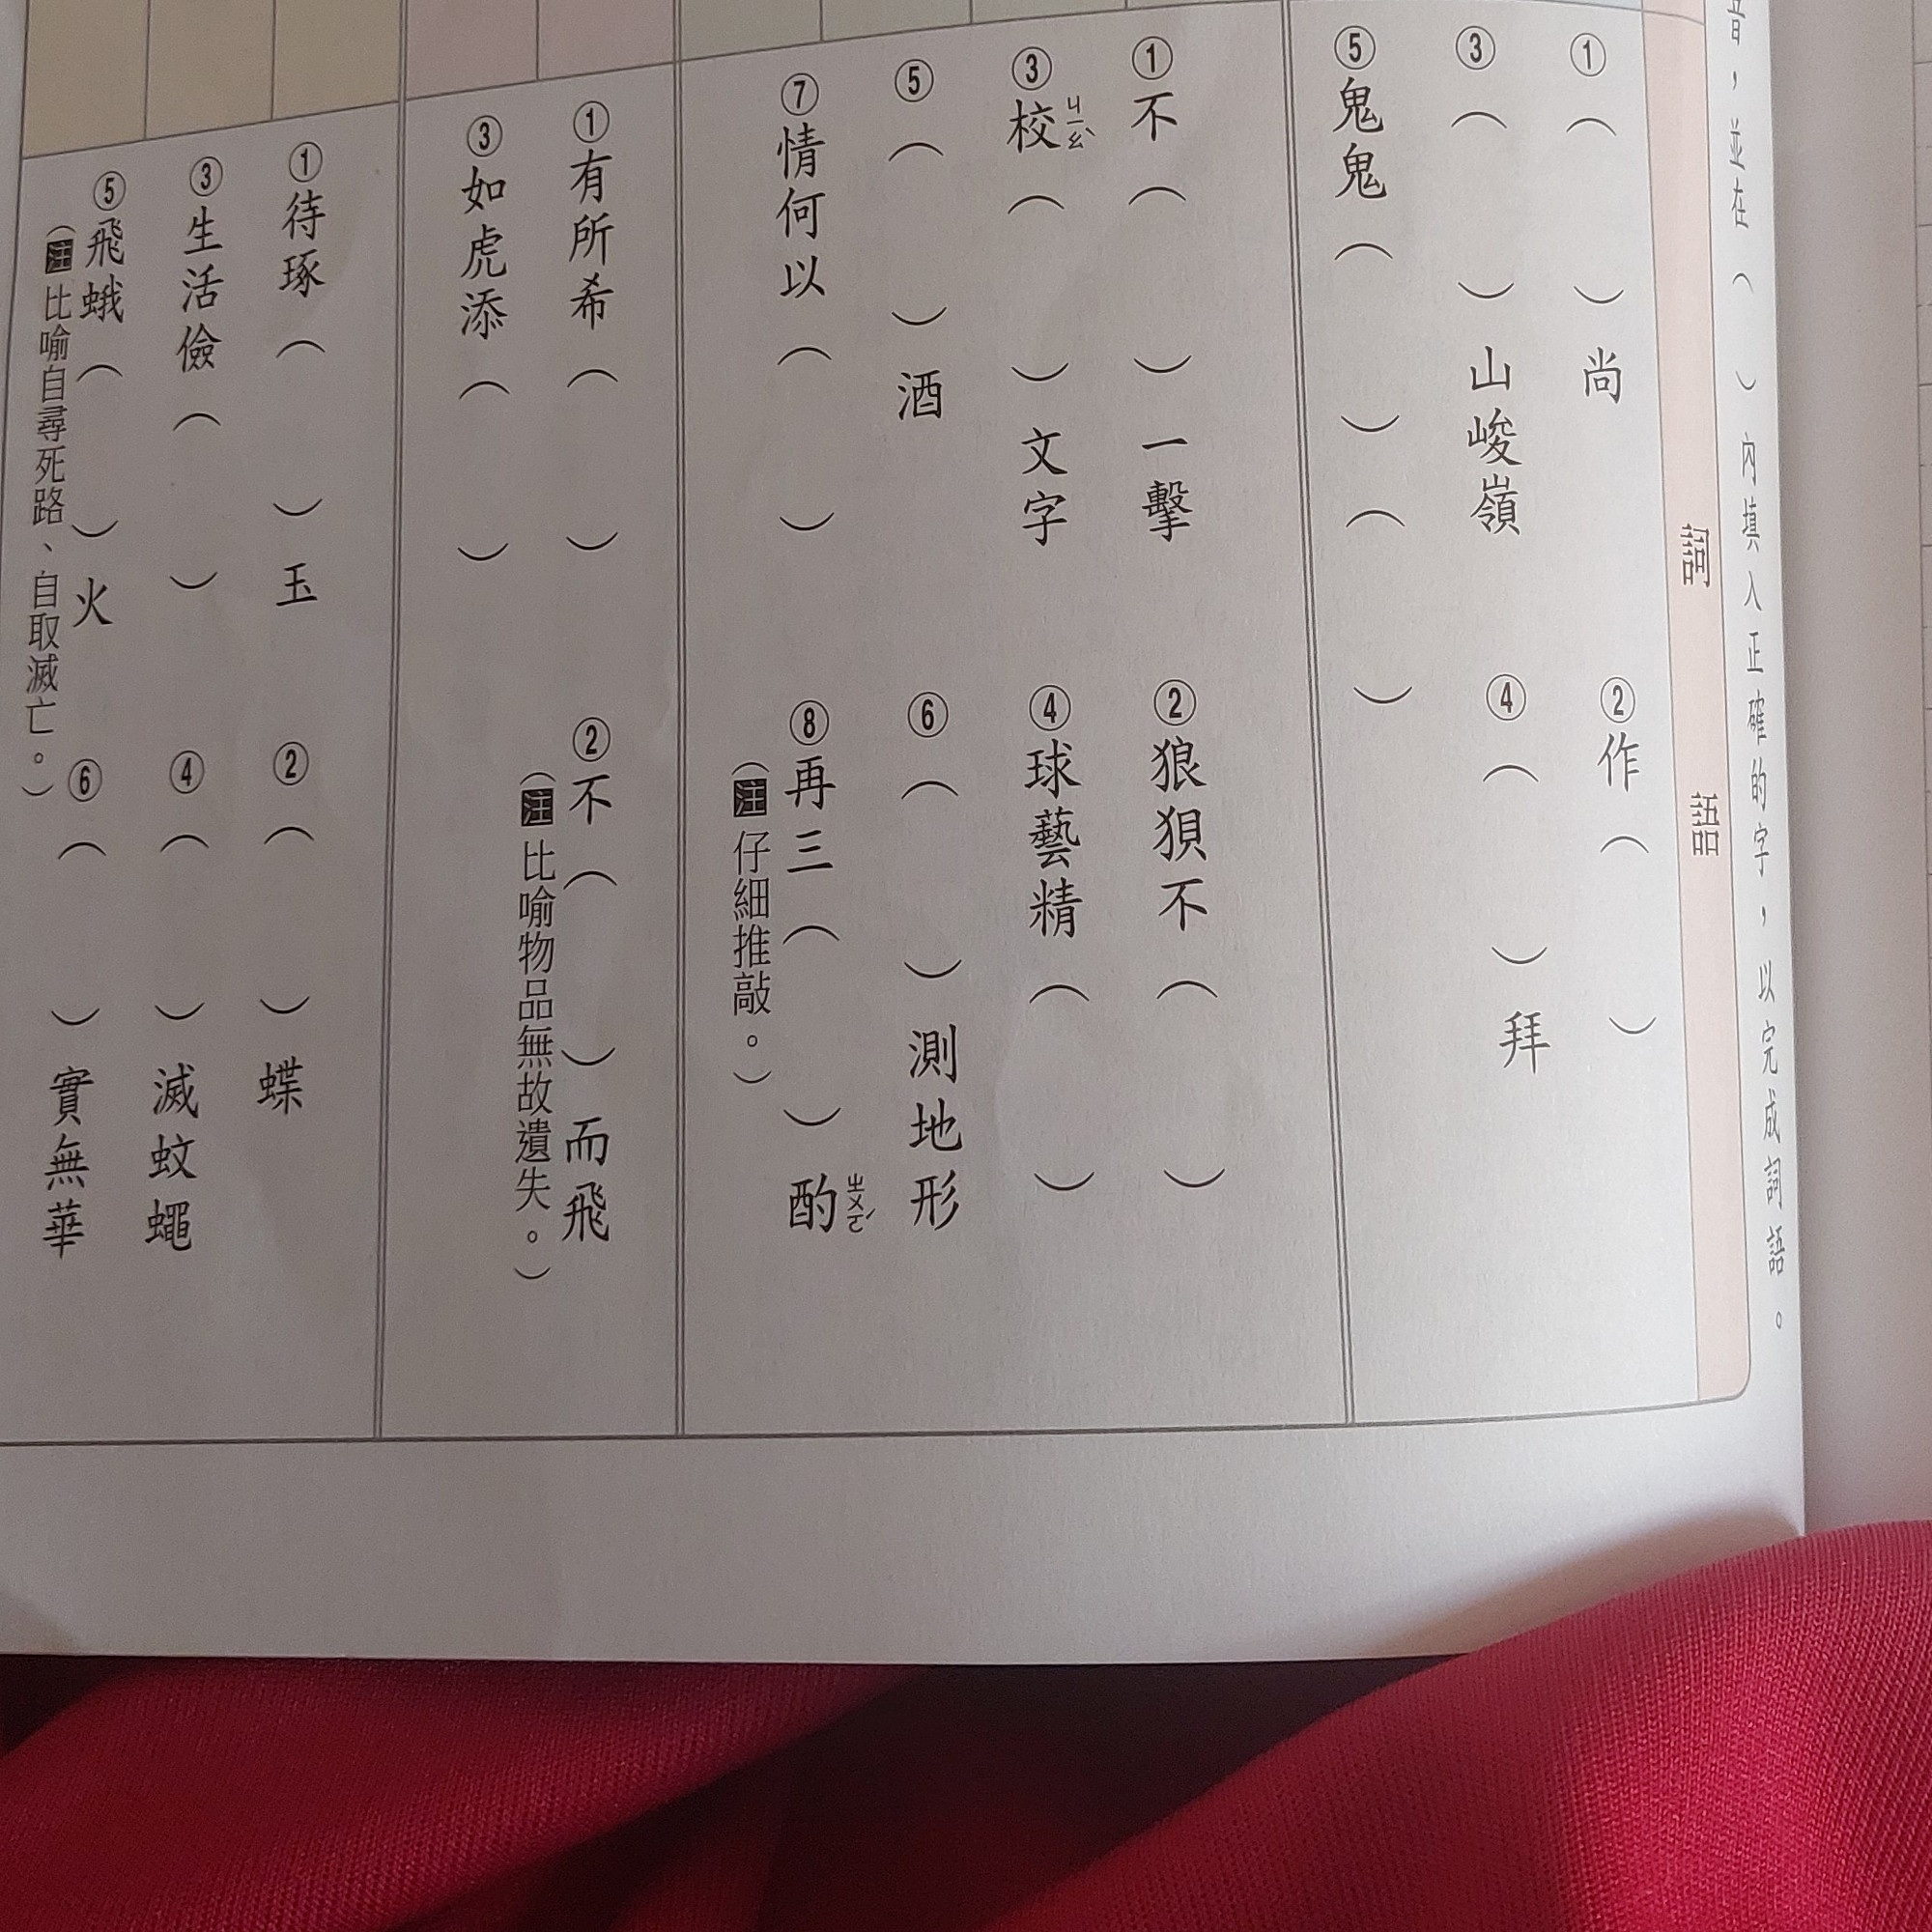 音，並在（　）內填入正確的字，以完成詞語。
詞語
①（　）尚
②作（　）
③（　）山峻嶺
④（　）拜
⑤鬼鬼（　）（　）
①不（　）一擊
②狼狽不（　）
③校ㄐㄧㄠˋ（　）文字
④球藝精（　）
⑤（　）酒
⑥（　）測地形
⑦情何以（　）
⑧再三（　）酌ㄓㄨㄛˊ
（注仔細推敲。）
①有所希（　）
②不（　）而飛
（注比喻物品無故遺失。）
③如虎添（　）
①待琢（　）玉
②（　）蝶
③生活儉（　）
④（　）滅蚊蠅
⑤飛蛾（　）火
（注比喻自尋死路、自取滅亡。）
⑥（　）實無華